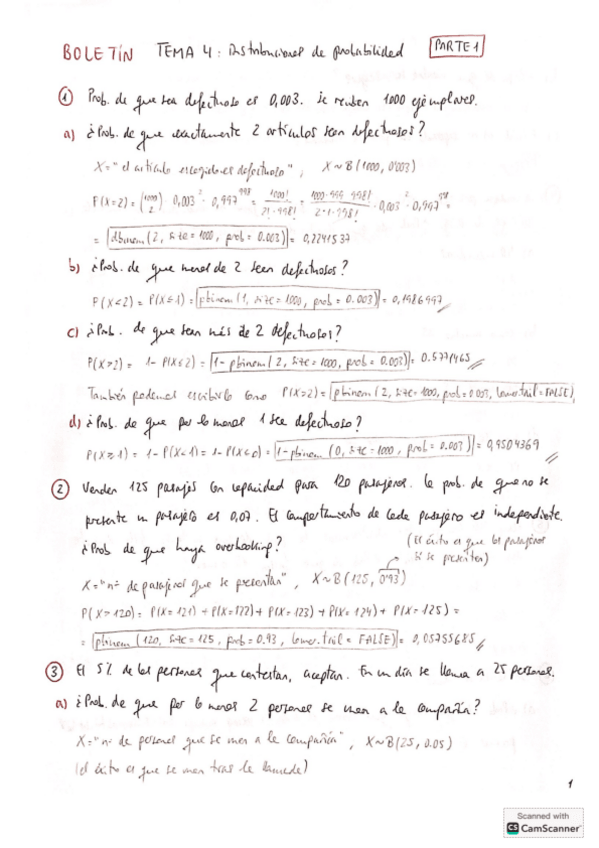 BOLETÍN TEMA 4: Distribuciones de probabilidad PARTE 1
① Prob. de que sea defectuoso es 0,003. Se revisan 1000 ejemplares.
a) ¿Prob. de que exactamente 2 artículos sean defectuosos?
X="el artículo escogido es defectuoso", X~B(1000, 0'003)
P(X=2) = (1000 2) 0,003² · 0,997⁹⁹⁸ = 1000! / 2! · 998! = 1000·999·998! / 2·1·998! · 0,003² · 0,997⁹⁹⁸ =
= dbinom(2, size=1000, prob=0.003) = 0,2241537
b) ¿Prob. de que menos de 2 sean defectuosos?
P(X<2) = P(X≤1) = pbinom(1, size=1000, prob=0.003) = 0,1986997
c) ¿Prob. de que sean más de 2 defectuosos?
P(X>2) = 1-P(X≤2) = 1-pbinom(2, size=1000, prob=0.003) = 0.5771465
También podemos escribirlo como P(X>2) = pbinom(2, size=1000, prob=0.003, lower.tail=FALSE)
d) ¿Prob. de que por lo menos 1 sea defectuoso?
P(X≥1) = 1-P(X<1) = 1-P(X≤0) = 1-pbinom(0, size=1000, prob=0.003) = 0,9504369
② Venden 125 pasajes con capacidad para 120 pasajeros. La prob. de que no se
presente un pasajero es 0,07. El comportamiento de cada pasajero es independiente.
¿Prob de que haya overbooking? (El éxito es que los pasajeros
sí se presenten)
X="nº de pasajeros que se presentan", X~B(125, 0'93)
P(X>120) = P(X=121) + P(X=122) + P(X=123) + P(X=124) + P(X=125) =
= pbinom(120, size=125, prob=0.93, lower.tail=FALSE) = 0,05755685
③ El 5% de las personas que contestan, aceptan. En un día se llama a 25 personas.
a) ¿Prob. de que por lo menos 2 personas se unan a la compañía?
X="nº de personas que se unen a la compañía", X~B(25, 0.05)
(el éxito es que se unan tras la llamada)
1
Scanned with
CS CamScanner